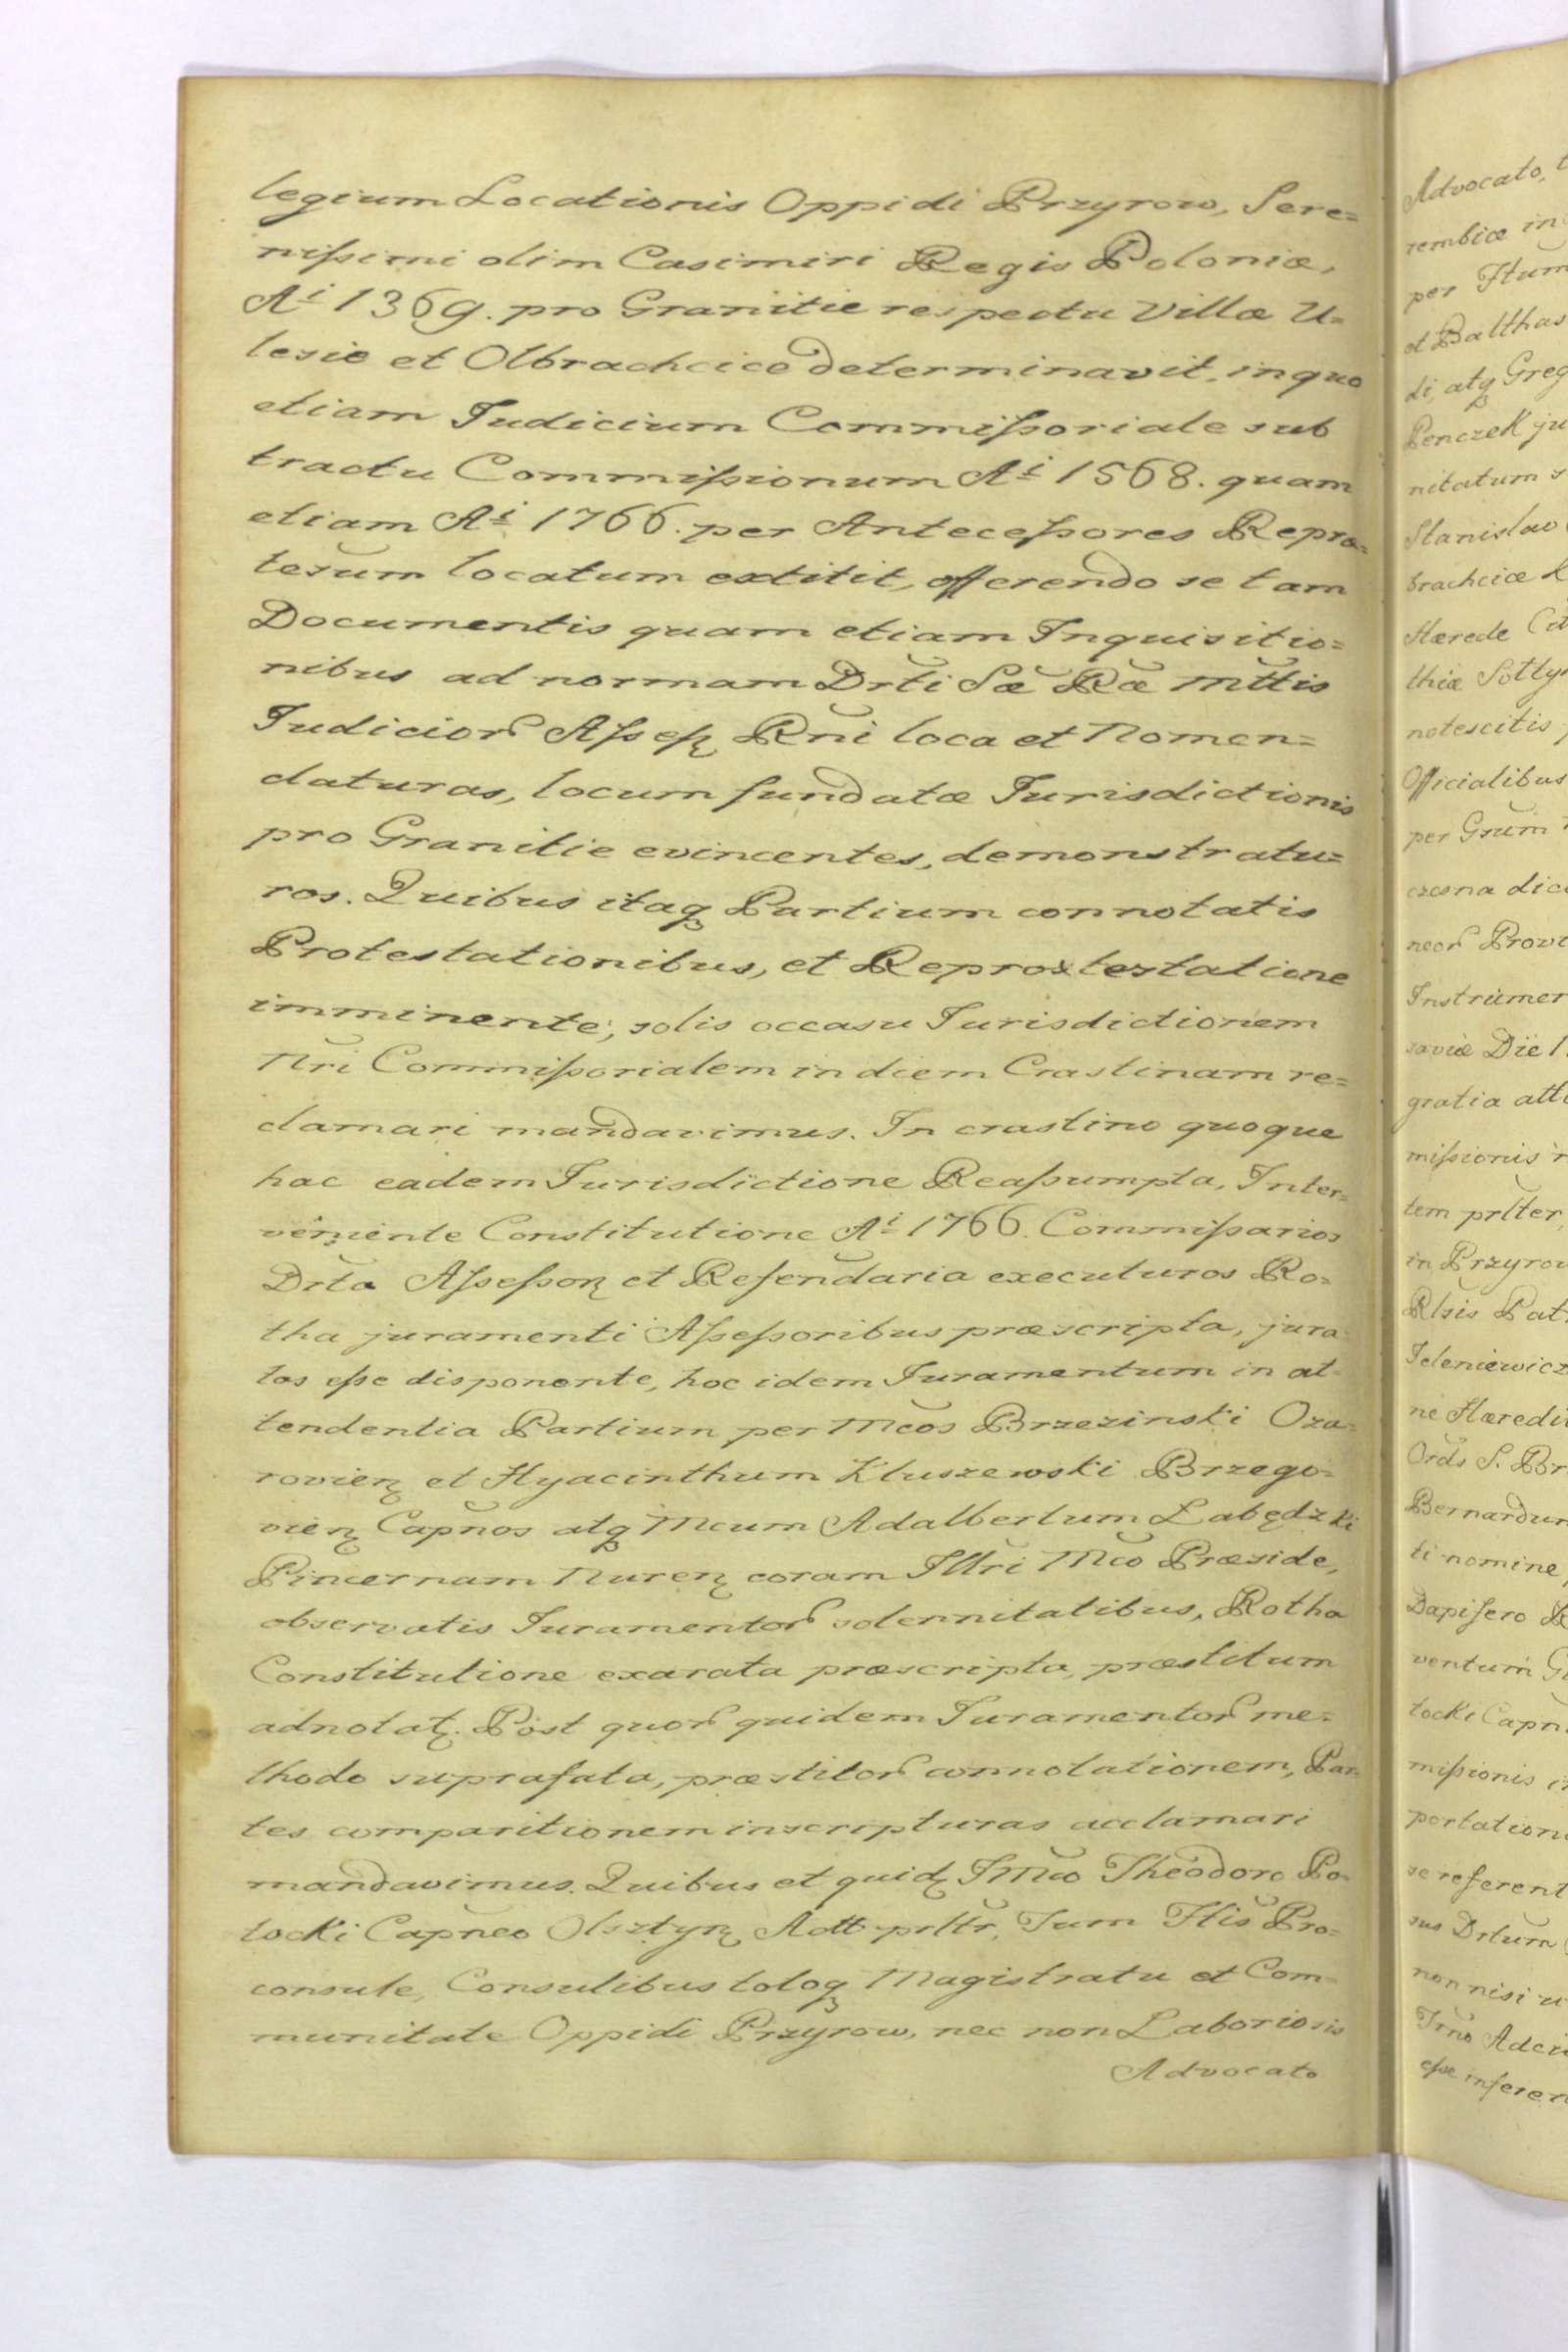 legium Locationis Oppidi Przyrow, Sere=
nißimi olim Casimiri Regis Poloniæ,
Aⁱ 1369. pro Granitie respectu Villæ U=
lesie et Olbrachcice determinavit, in quo
etiam Judicium Commißoriale sub
tractu Commißionum Aⁱ 1568. quam
etiam Aⁱ 1766. per Anteceßores Repro=
tesum locatum extitit, offerendo se tam
Documentis quam etiam Inquisitio=
nibus ad normam Drti Sæ Ræ Mttis
Judicior Aſseſs Rni loca et Nomen=
claturas, locum fundatæ Jurisdictionis
pro Granitie evincentes, demonstratu=
ros. Quibus itaq Partium connotatis
Protestationibus, et Reprotestatione
imminente, solis occasu Jurisdictionem
Nri Commißorialem in diem Crastinam re=
clamari mandavimus. In crastino quoque
hac eadem Jurisdictione Reaßumpta, Inter=
veniente Constitutione Aⁱ 1766. Commißarios
Drta Aßeßor et Referendaria executuros Ro=
tha juramenti Aßeßoribus præscripta, jura=
tos eße disponente, hoc idem Juramentum in at=
tendentia Partium per Mcos Brzezinski Oza=
rovien et Hyacinthum Kluszewski Brzego=
vien Capnos atq Mcum Adalbertum Łabędzki
Pincernam Nuren coram Illri Mco Præside,
observatis Juramentor solennitatibus, Rotha
Constitutione exarata præscripta, præstitum
adnotat. Post quor quidem Juramentor me=
thodo suprafata, præstitor connotationem, Par=
tes comparitionem inscripturas acclamari
mandavimus. Quibus et quid IMco Theodoro Po=
tocki Capneo Olsztyn Actt prlttr, Tum Flis Pro=
consule, Consulibus totoq Magistratu et Com=
munitate Oppidi Przyrow, nec non Laboriosis
Advocato
Advocato,
rembiæ in
per
et Balthas
di, atq Greg
Penczek ju
nitatum
Stanislao
brachciæ
Hærede
notescitis
Officialibus
per
Instrumen
gratia
mißionis
tem prltter
in Przyrow
Pat
Jeleniewicz
ne Hæredi
Ords S. Br
Bernardun
ti nomine,
Dapifero
ventum
tocki Capn
mißionis
portation
se referent
sus Drtum
non nisi
eße inferen